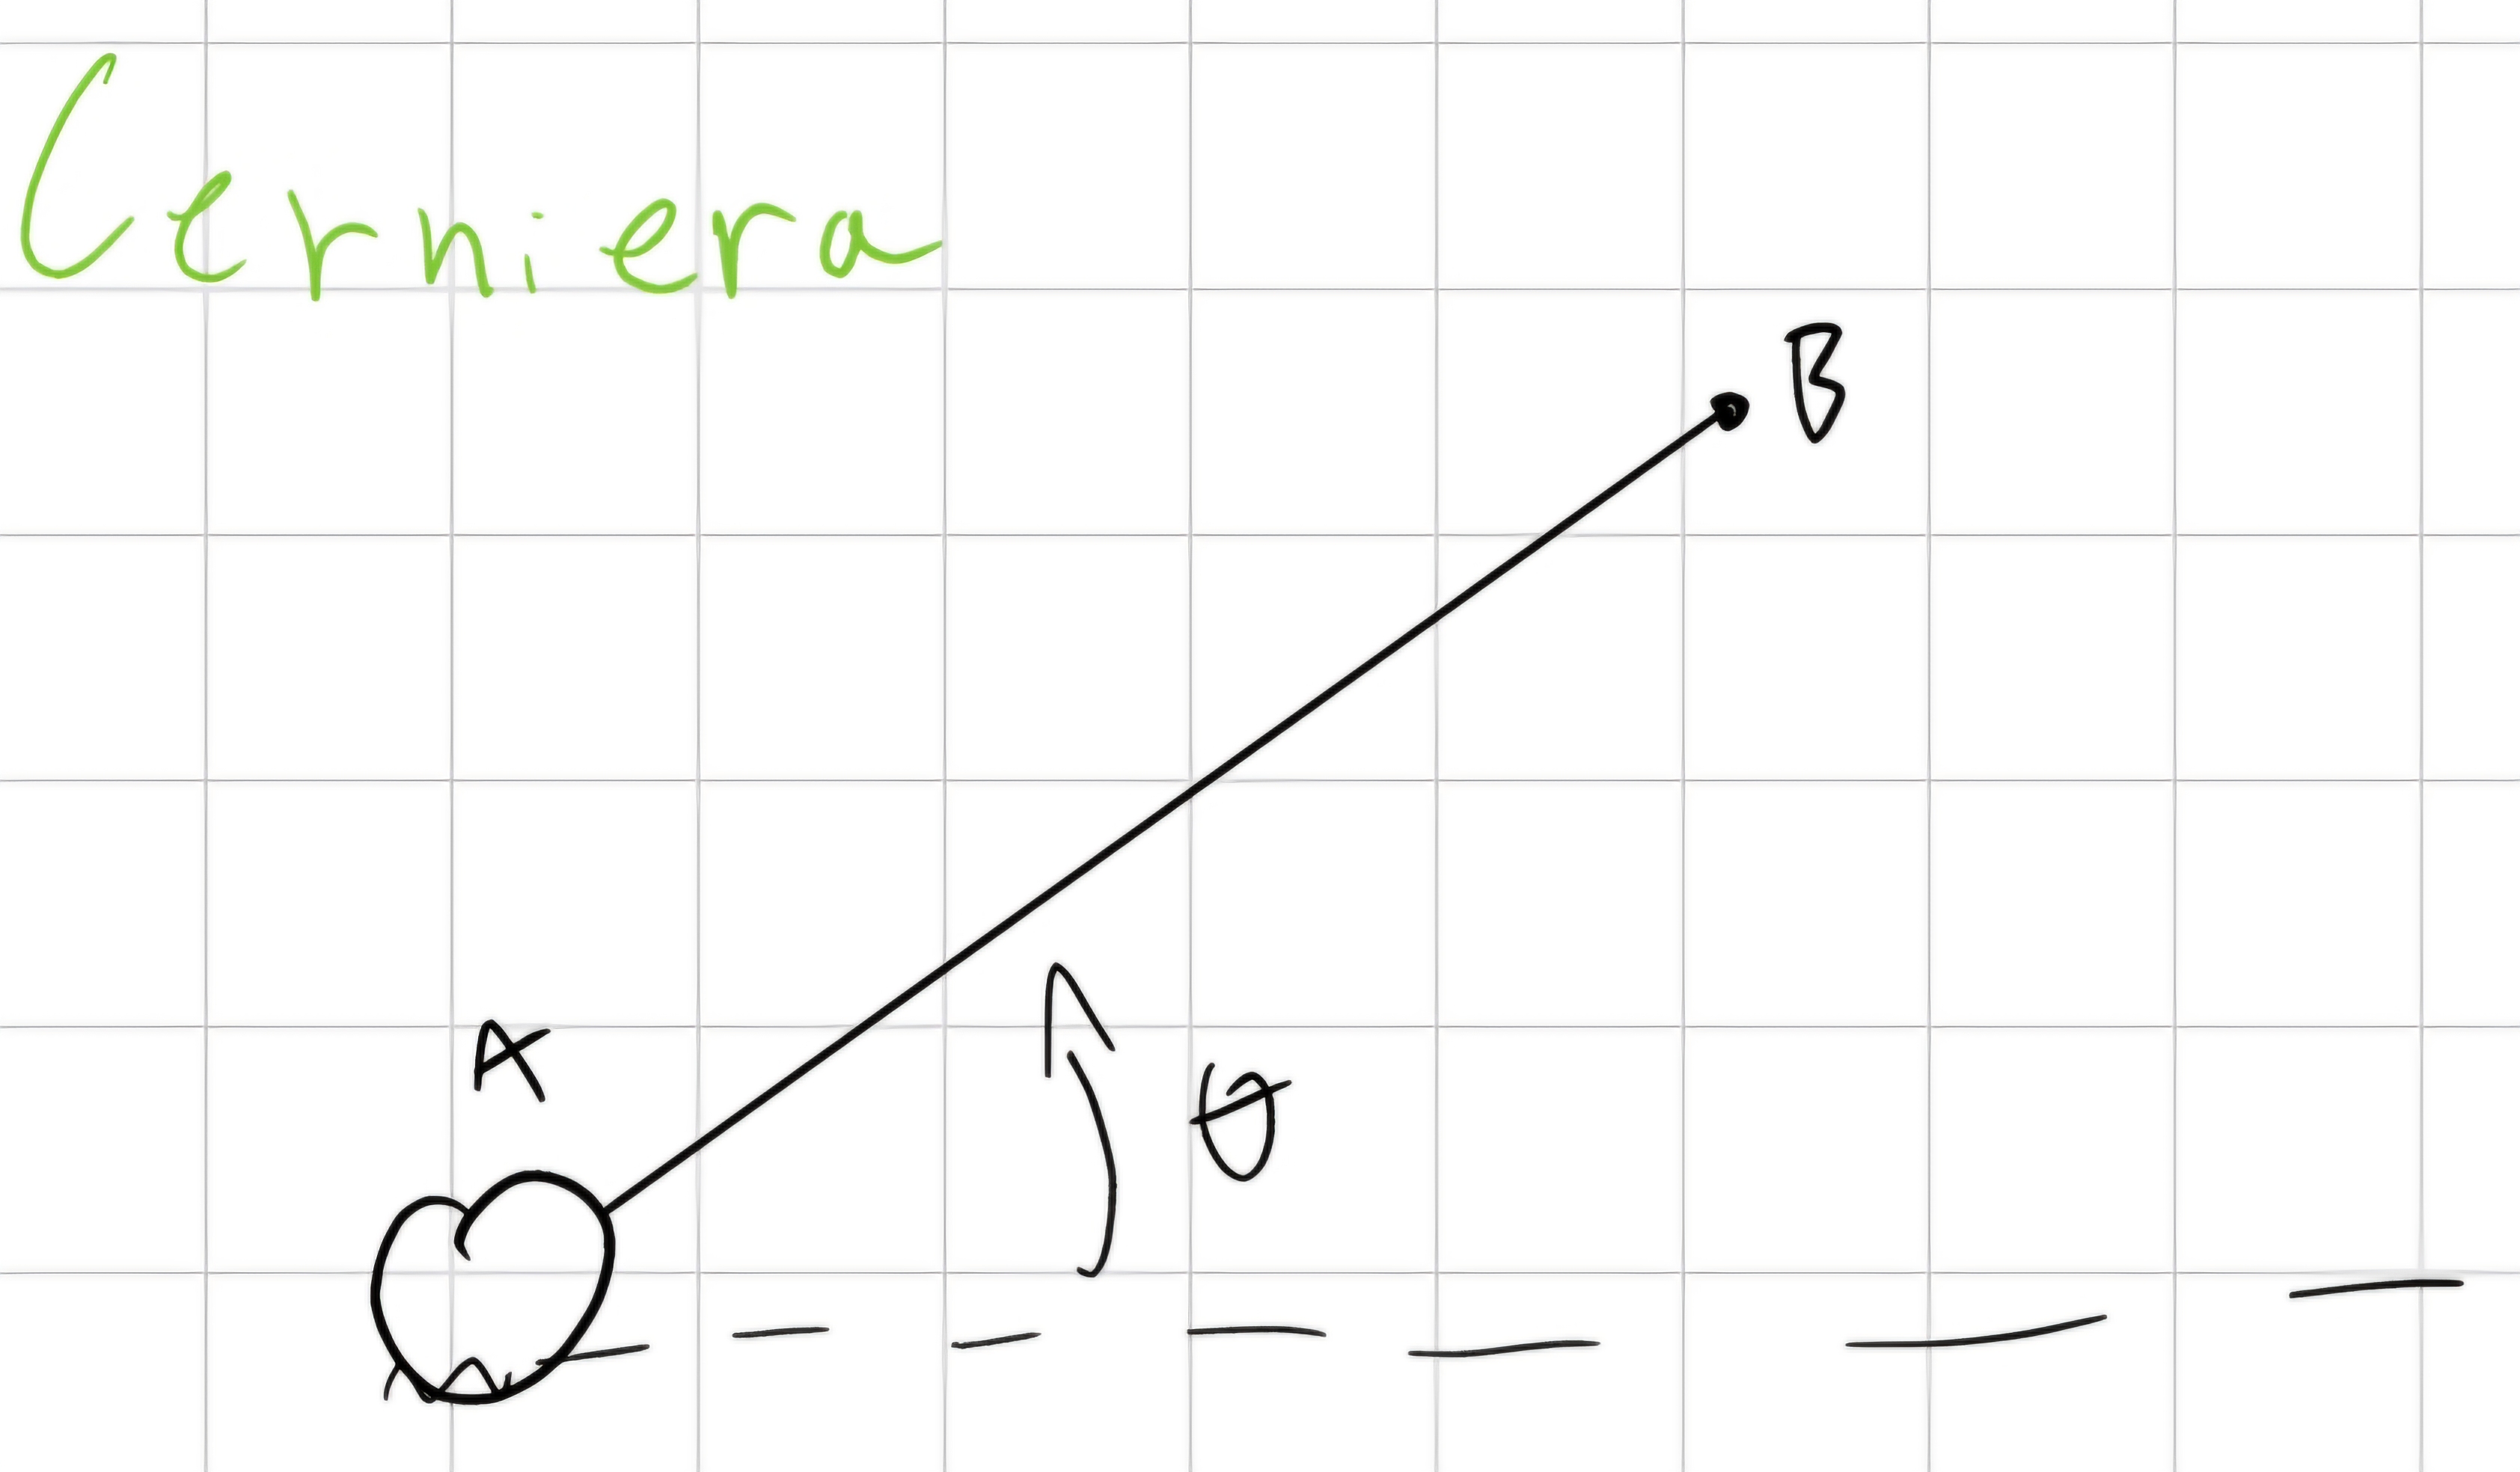 Cerniera
B
A
θ